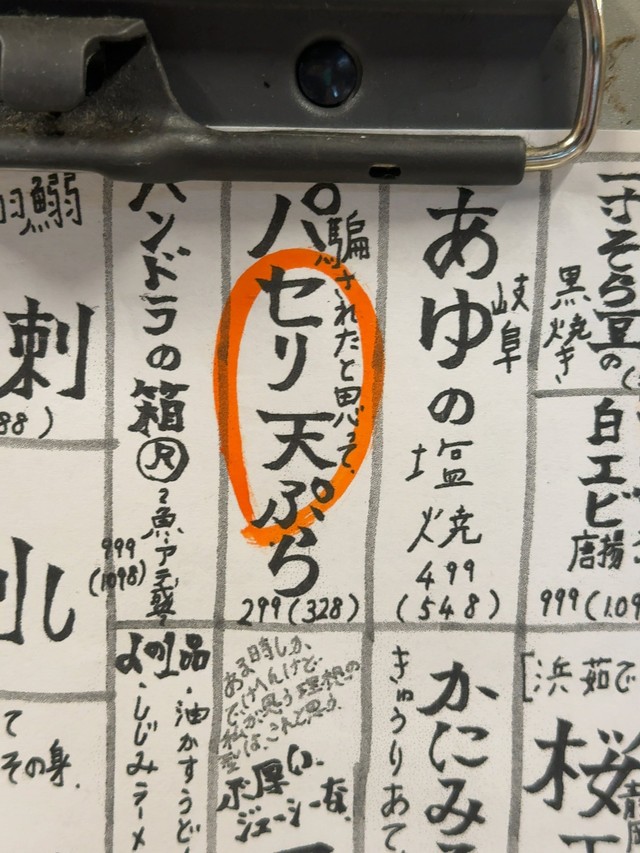 一寸そら豆の
黒焼き
白エビ
唐揚
999(109
[浜茹で
桜
静岡
岐阜
あゆの
塩焼
499
(548)
かにみ
きゅうりあて
騙されたと思って、
パセリ天ぷら
299(328)
ある時しか
私が思う理想の
型は、これと思う。
ド厚い、
ジューシーな、
パンドラの箱
999
(1098)
品
・油かすうどん
・しじみラーメ
鰯
刺
88)
て
その身.